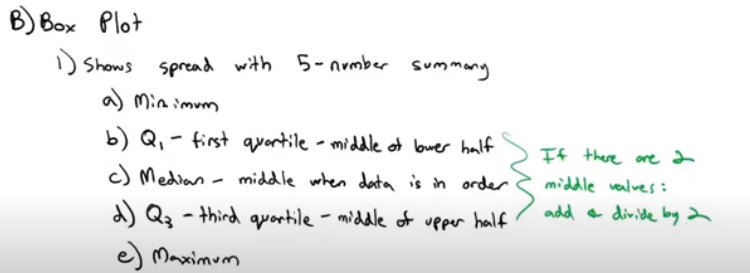 B) Box Plot
1) Shows spread with 5-number summary
a) Minimum
b) Q₁ - first quartile - middle of lower half
c) Median - middle when data is in order
d) Q₃ - third quartile - middle of upper half
e) Maximum
If there are 2
middle values:
add & divide by 2